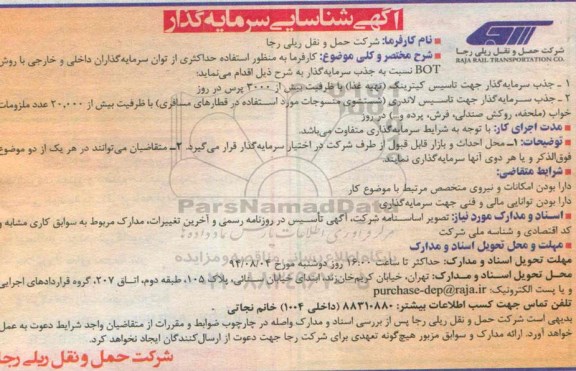 آگهی شناسایی سرمایه‌گذار
شرکت حمل و نقل ریلی رجا
RAJA RAIL TRANSPORTATION CO.
نام کارفرما: شرکت حمل و نقل ریلی رجا
شرح مختصر و کلی موضوع: کارفرما به منظور استفاده حداکثری از توان سرمایه‌گذاران داخلی و خارجی با روش
BOT نسبت به جذب سرمایه‌گذار به شرح ذیل اقدام می‌نماید:
۱ ـ جذب سرمایه‌گذار جهت تاسیس کیترینگ (تهیه غذا) با ظرفیت بیش از ۳۰۰۰ پرس در روز
۲ ـ جذب سرمایه‌گذار جهت تاسیس لاندری (شستشوی منسوجات مورد استفاده در قطارهای مسافری) با ظرفیت بیش از ۲۰,۰۰۰ عدد ملزومات
خواب (ملحفه، روکش صندلی، فرش، پرده و ...) در روز
مدت اجرای کار: با توجه به شرایط سرمایه‌گذاری متفاوت می‌باشد.
توضیحات: ۱ـ محل احداث و بازار قابل قبول از طرف شرکت در اختیار سرمایه‌گذار قرار می‌گیرد. ۲ـ متقاضیان می‌توانند در هر یک از دو موضوع
فوق‌الذکر و یا هر دوی آنها سرمایه‌گذاری نمایند.
شرایط متقاضی:
دارا بودن امکانات و نیروی متخصص مرتبط با موضوع کار
دارا بودن توانایی مالی و فنی جهت سرمایه‌گذاری
ParsNamadData
اسناد و مدارک مورد نیاز: تصویر اساسنامه شرکت، آگهی تأسیس در روزنامه رسمی و آخرین تغییرات، مدارک مربوط به سوابق کاری مشابه و
کد اقتصادی و شناسه ملی شرکت
مهلت و محل تحویل اسناد و مدارک
مهلت تحویل اسناد و مدارک: حداکثر تا ساعت ۱۶:۰۰ روز دوشنبه مورخ
محل تحویل اسناد و مدارک: تهران، خیابان کریم‌خان زند، ابتدای خیابان سنائی، پلاک ۱۰۵، طبقه دوم، اتاق ۲۰۷، گروه قراردادهای اجرایی
و یا پست الکترونیک: purchase-dep@raja.ir
تلفن تماس جهت کسب اطلاعات بیشتر: ۸۸۳۱۰۸۸۰ (داخلی ۱۰۰۴) خانم نجاتی
بدیهی است شرکت حمل و نقل ریلی رجا پس از بررسی اسناد و مدارک واصله در چارچوب ضوابط و مقررات از متقاضیان واجد شرایط دعوت به عمل
خواهد آورد. ارائه مدارک و سوابق مزبور هیچ‌گونه تعهدی برای شرکت رجا جهت دعوت از ارسال‌کنندگان ایجاد نخواهد کرد.
شرکت حمل و نقل ریلی رجا